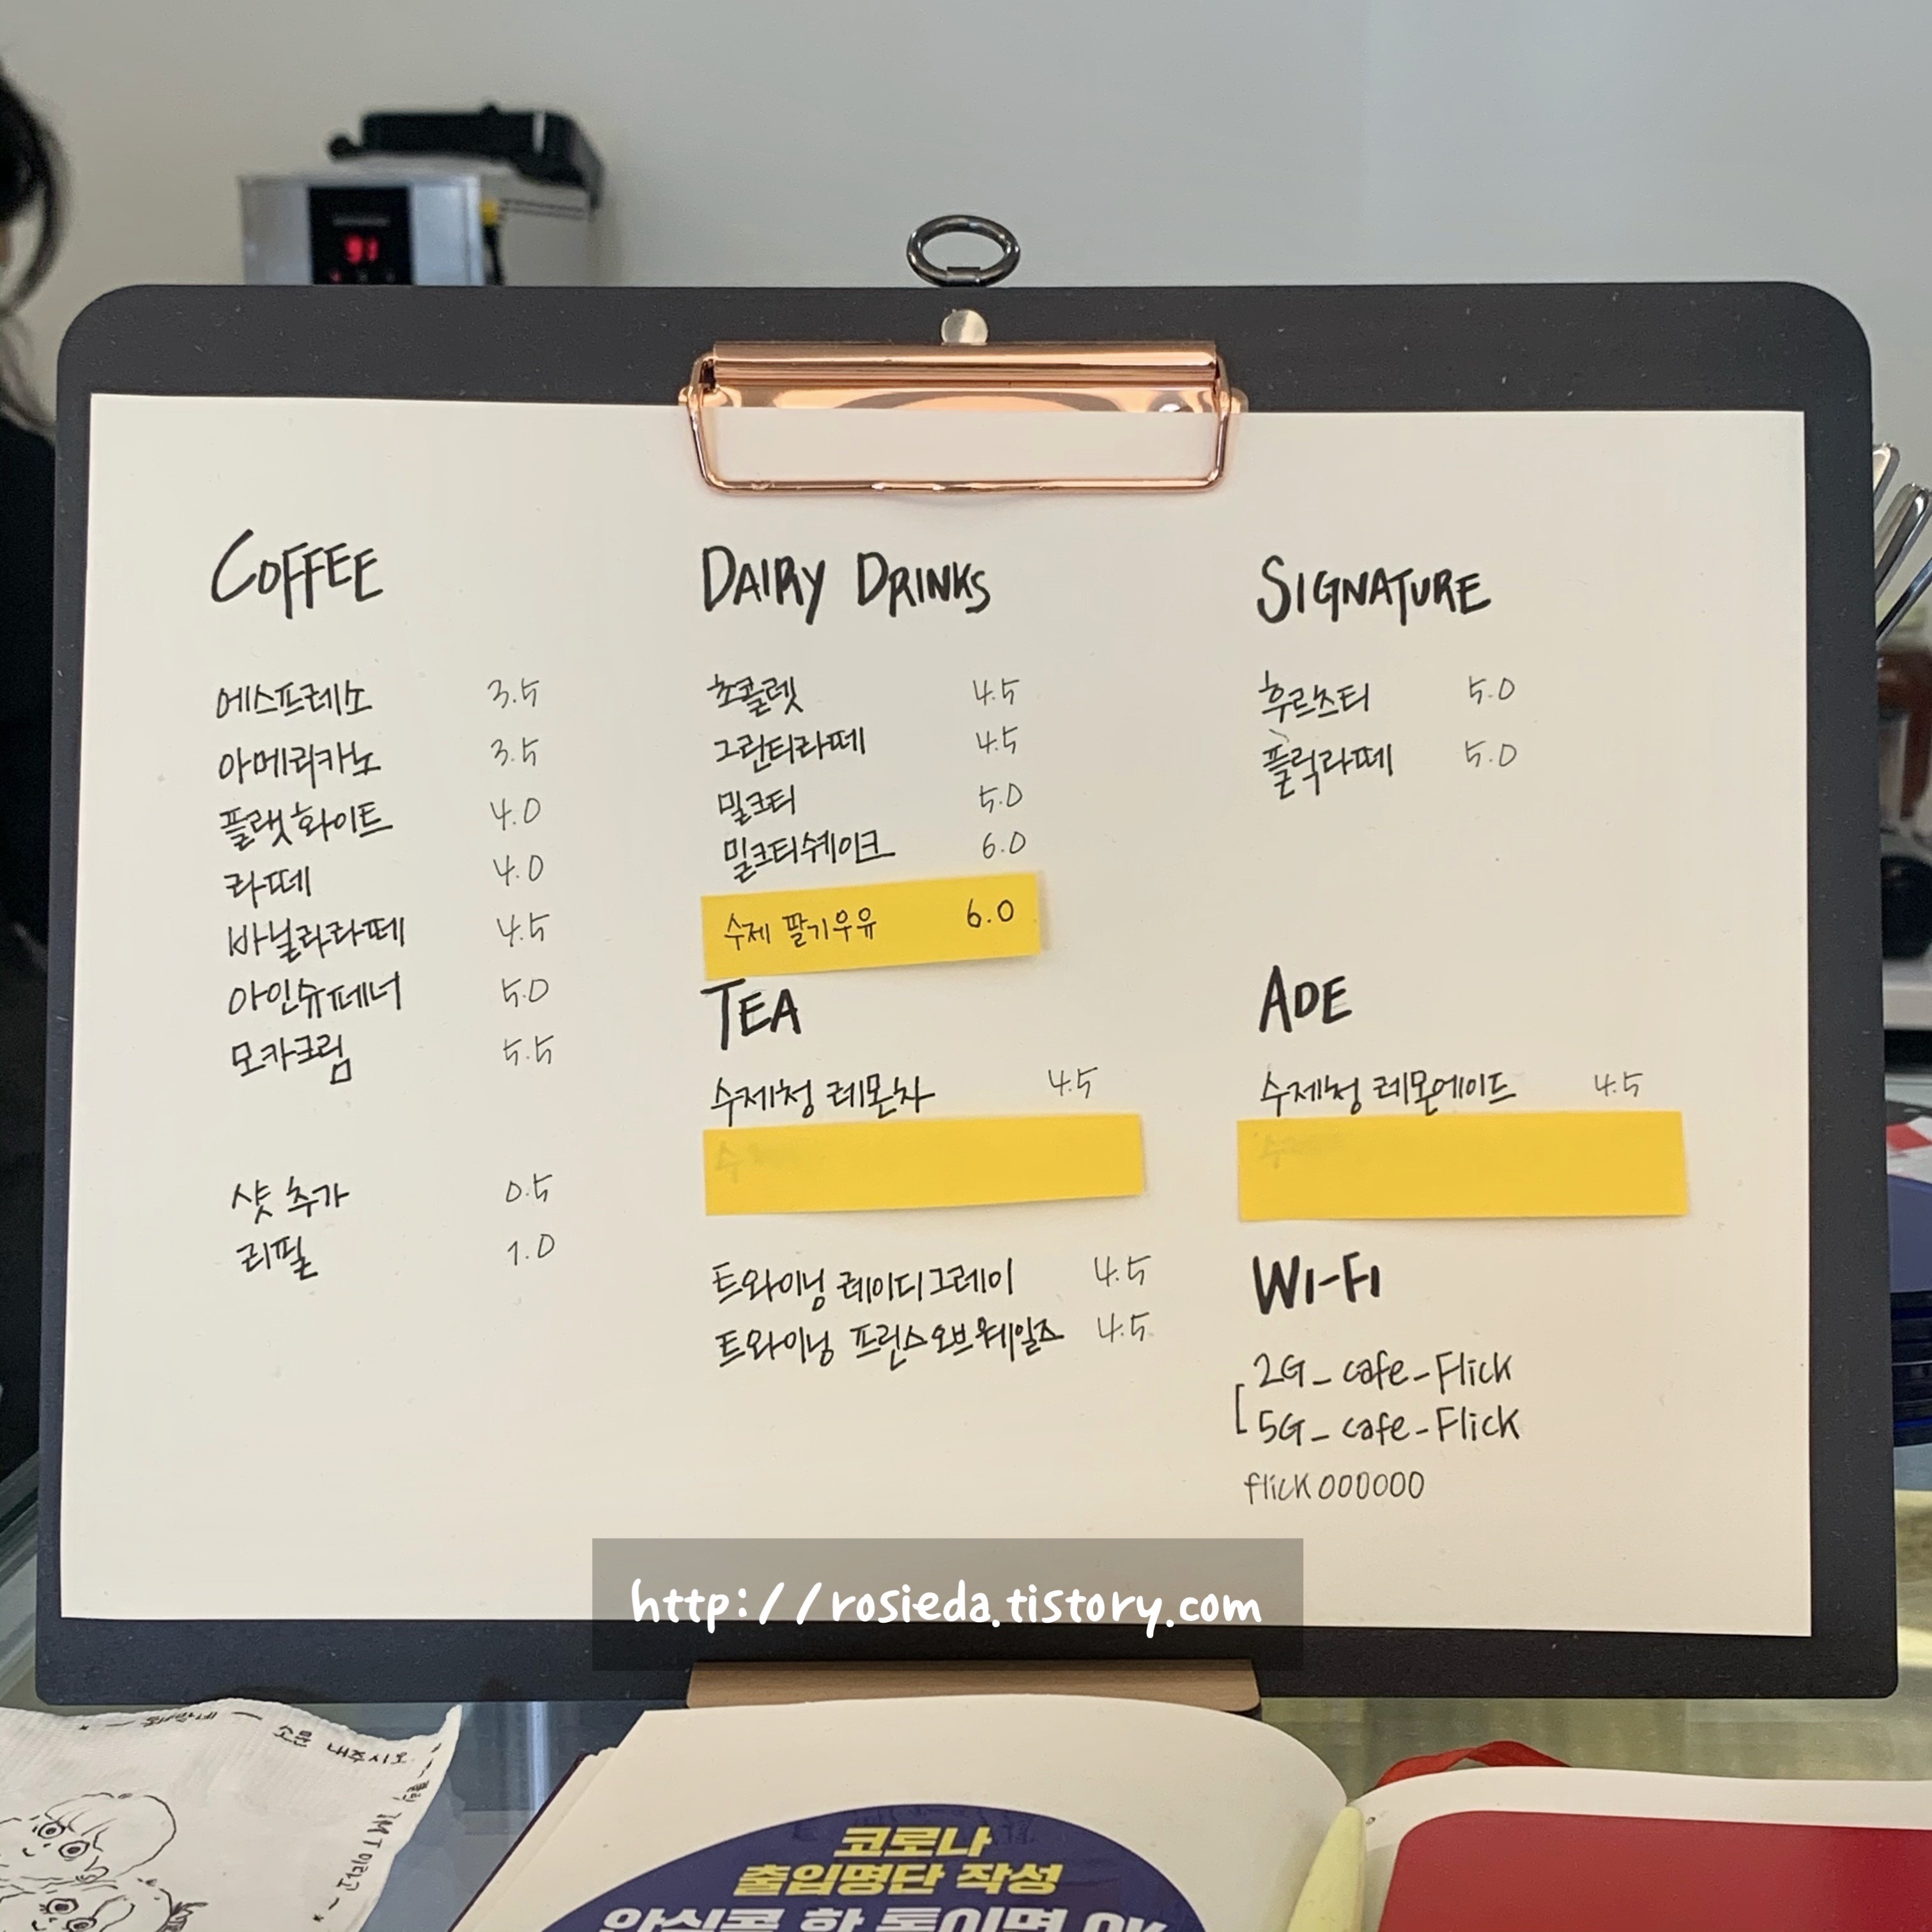 91
COFFEE
에스프레소 3.5
아메리카노 3.5
플랫화이트 4.0
라떼 4.0
바닐라라떼 4.5
아인슈페너 5.0
모카크림 5.5
샷 추가 0.5
리필 1.0
DAIRY DRINKS
초콜렛 4.5
그린티라떼 4.5
밀크티 5.0
밀크티쉐이크 6.0
수제 딸기우유 6.0
TEA
수제청 레몬차 4.5
수
트와이닝 레이디그레이 4.5
트와이닝 프린스오브웨일즈 4.5
SIGNATURE
후르츠티 5.0
플릭라떼 5.0
ADE
수제청 레몬에이드 4.5
수
WI-FI
2G_cafe-Flick
5G_cafe-Flick
flick000000
http://rosieda.tistory.com
코로나
출입명단 작성
안심콜 한 통이면 OK